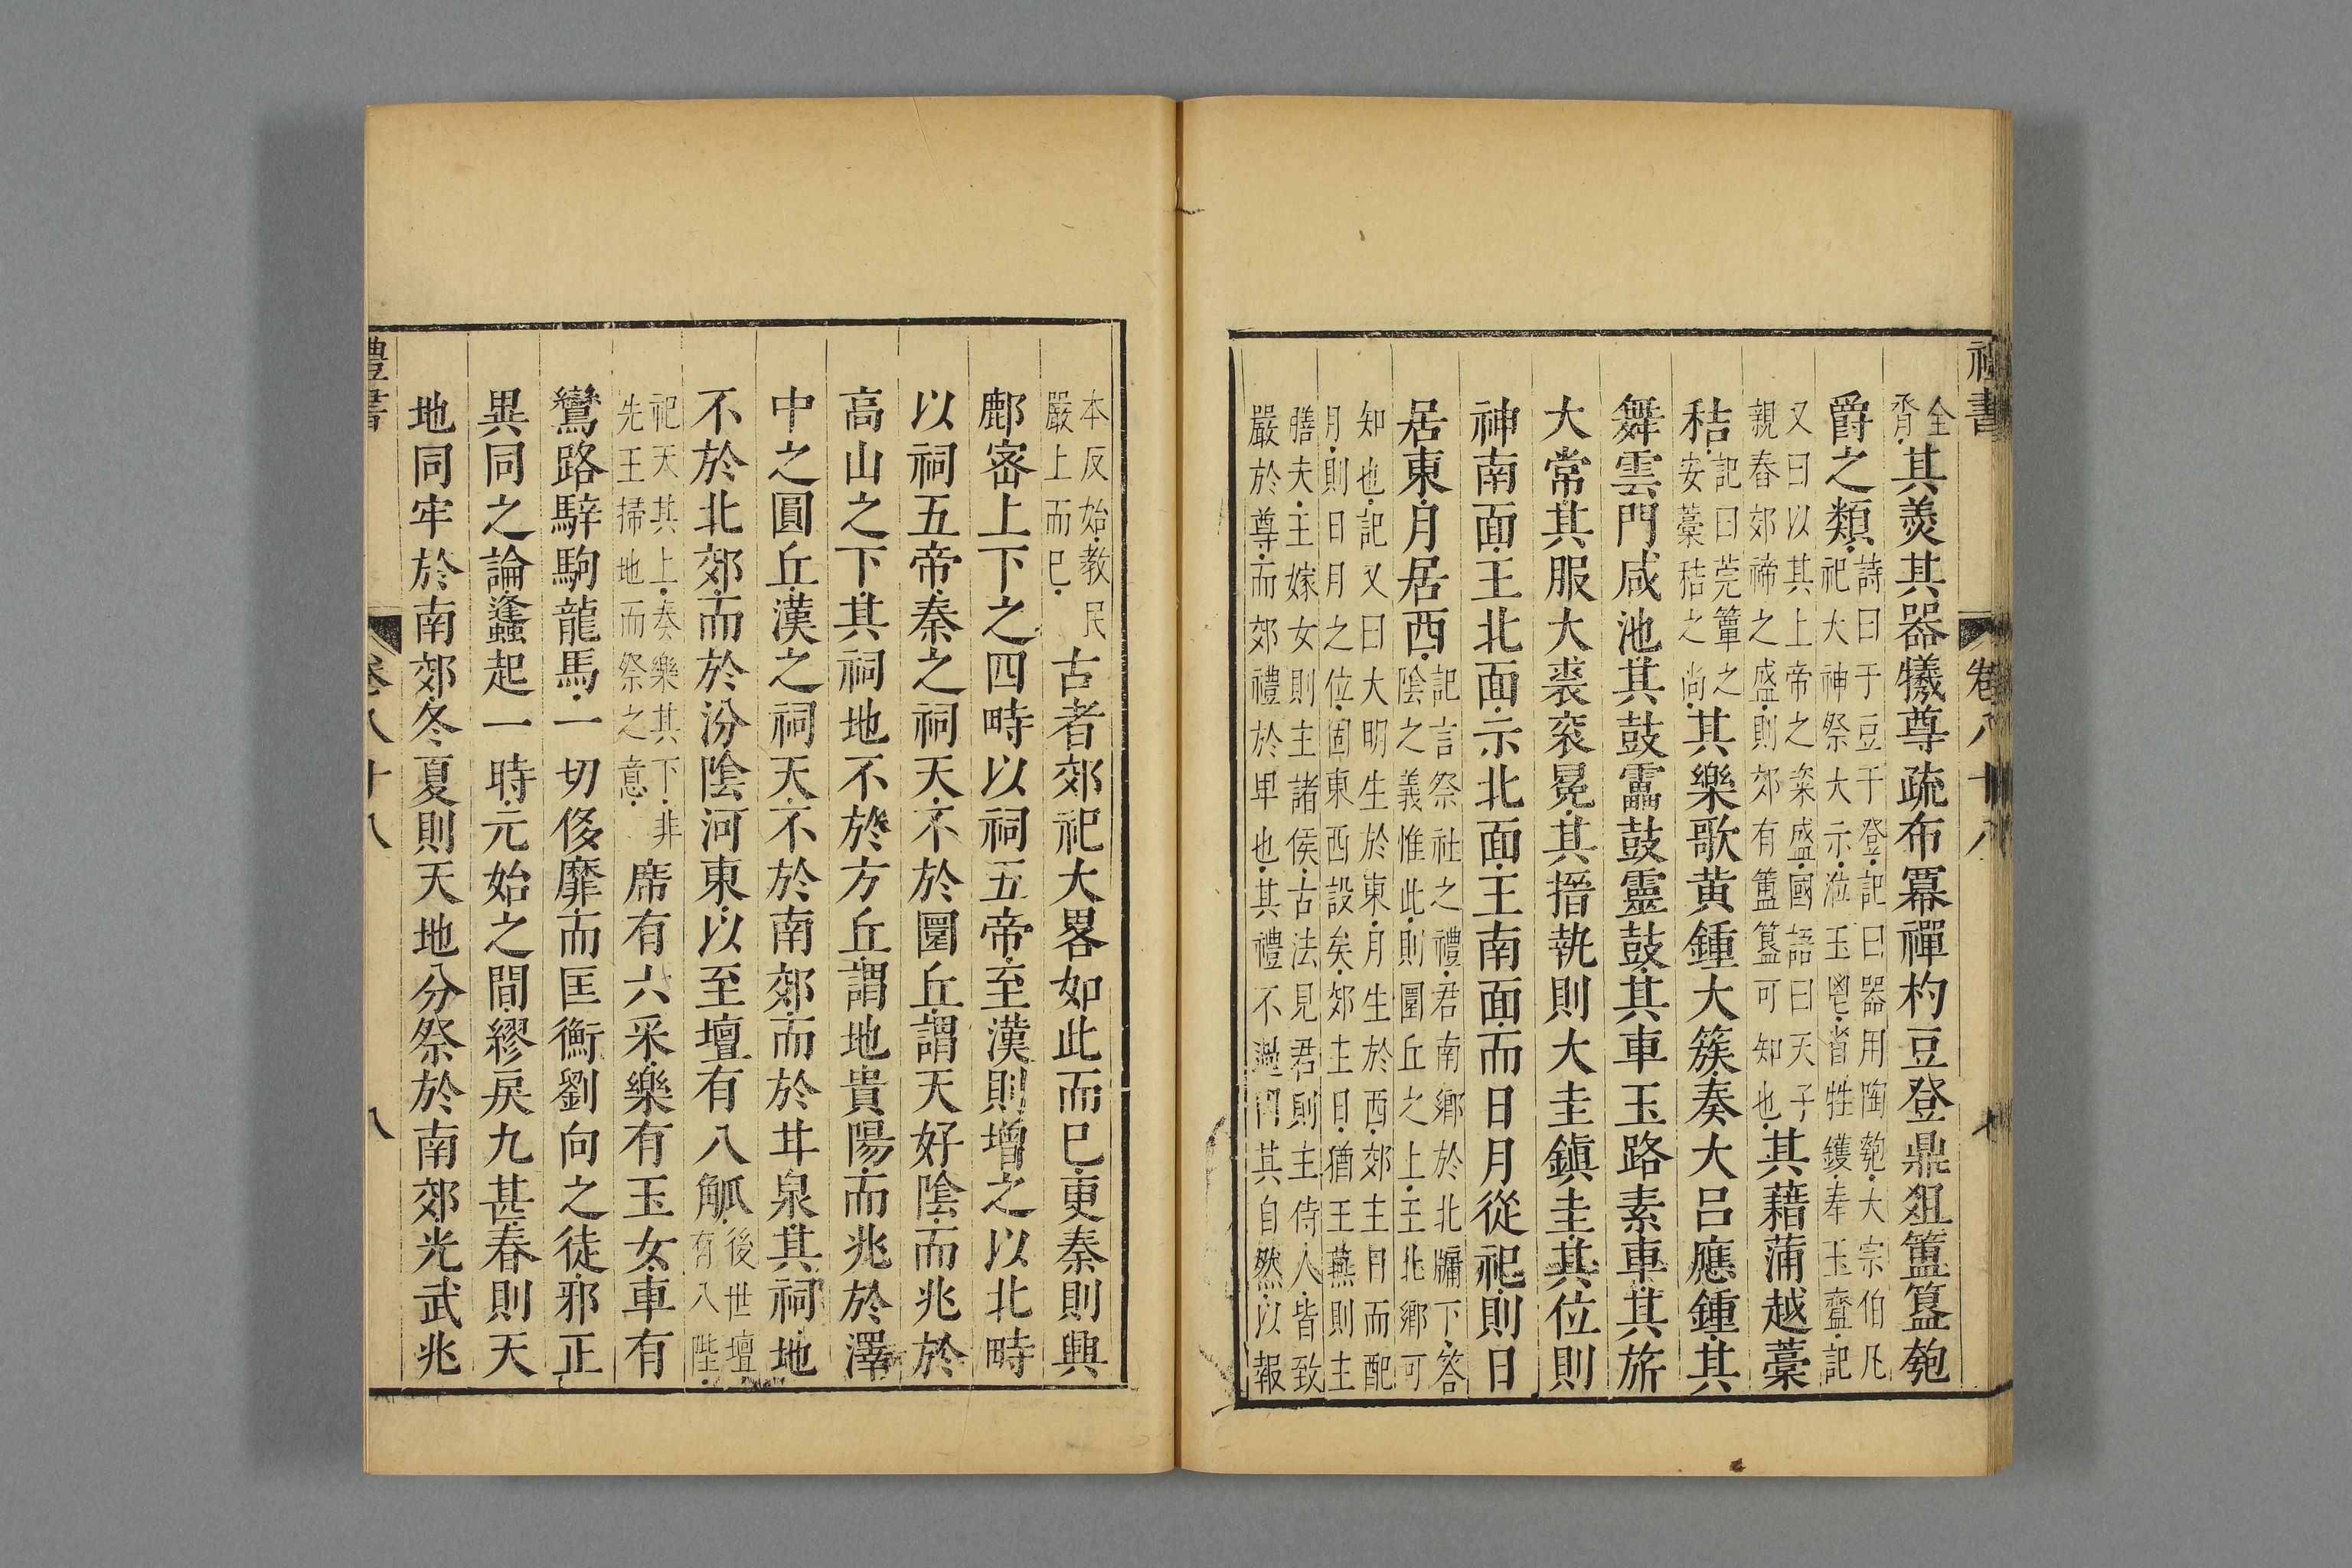 禮書 卷八十八 七
全脀其羹其器犧尊疏布冪禪杓豆登鼎俎簠簋匏
爵之類詩曰于豆于登記曰器用陶匏大宗伯凡祀大神祭大示涖玉鬯省牲鑊奉玉齍記
又曰以其上帝之粢盛國語曰天子親舂郊禘之盛則郊有簠簋可知也其藉蒲越藁
秸記曰莞簟之安藁秸之尚其樂歌黃鍾大簇奏大呂應鍾其
舞雲門咸池其鼓靁鼓靈鼓其車玉路素車其旂
大常其服大裘衮冕其搢執則大圭鎮圭其位則
神南面王北面示北面王南面而日月從祀則日
居東月居西記言祭社之禮君南鄉於北牖下答陰之義惟此則圜丘之上王北鄉可
知也記又曰大明生於東月生於西郊主日而配月則日月之位固東西設矣郊主日猶王燕則主
膳夫主嫁女則主諸侯古法見君則主侍人皆致嚴於尊而郊禮於卑也其禮不過門其自然以報
本反始教民嚴上而已古者郊祀大畧如此而已更秦則興
鄜宻上下之四畤以祠五帝至漢則增之以北畤
以祠五帝秦之祠天不於圜丘謂天好陰而兆於
高山之下其祠地不於方丘謂地貴陽而兆於澤
中之圓丘漢之祠天不於南郊而於甘泉其祠地
不於北郊而於汾陰河東以至壇有八觚後世壇有八陛
祀天其上奏樂其下非先王掃地而祭之意席有六采樂有玉女車有
鸞路騂駒龍馬一切侈靡而匡衡劉向之徒邪正
異同之論蠭起一時元始之間繆戾尢甚春則天
地同牢於南郊冬夏則天地分祭於南郊光武兆
禮書 卷八十八 八